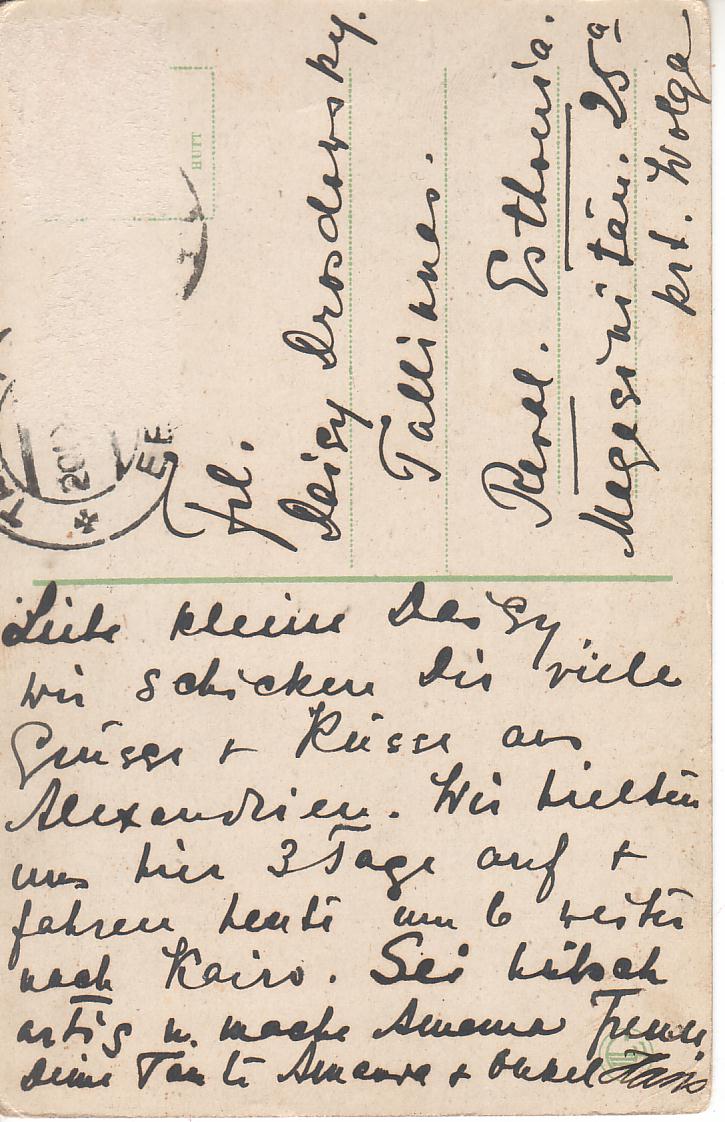 Liebe kleine Daisy,
wir schicken Dir viele
Grüsse + Küsse aus
Alexandrien. Wir hielten
uns hier 3 Tage auf +
fahren heute um 6 weiter
nach Kairo. Sei hübsch
artig u. mache Amama Freude
Deine Tante + Onkel Hans
Frl.
Daisy Drosdowsky.
Tallinnas.
Reval. Esthonia.
25ª
krt. Wolga
2011
EE